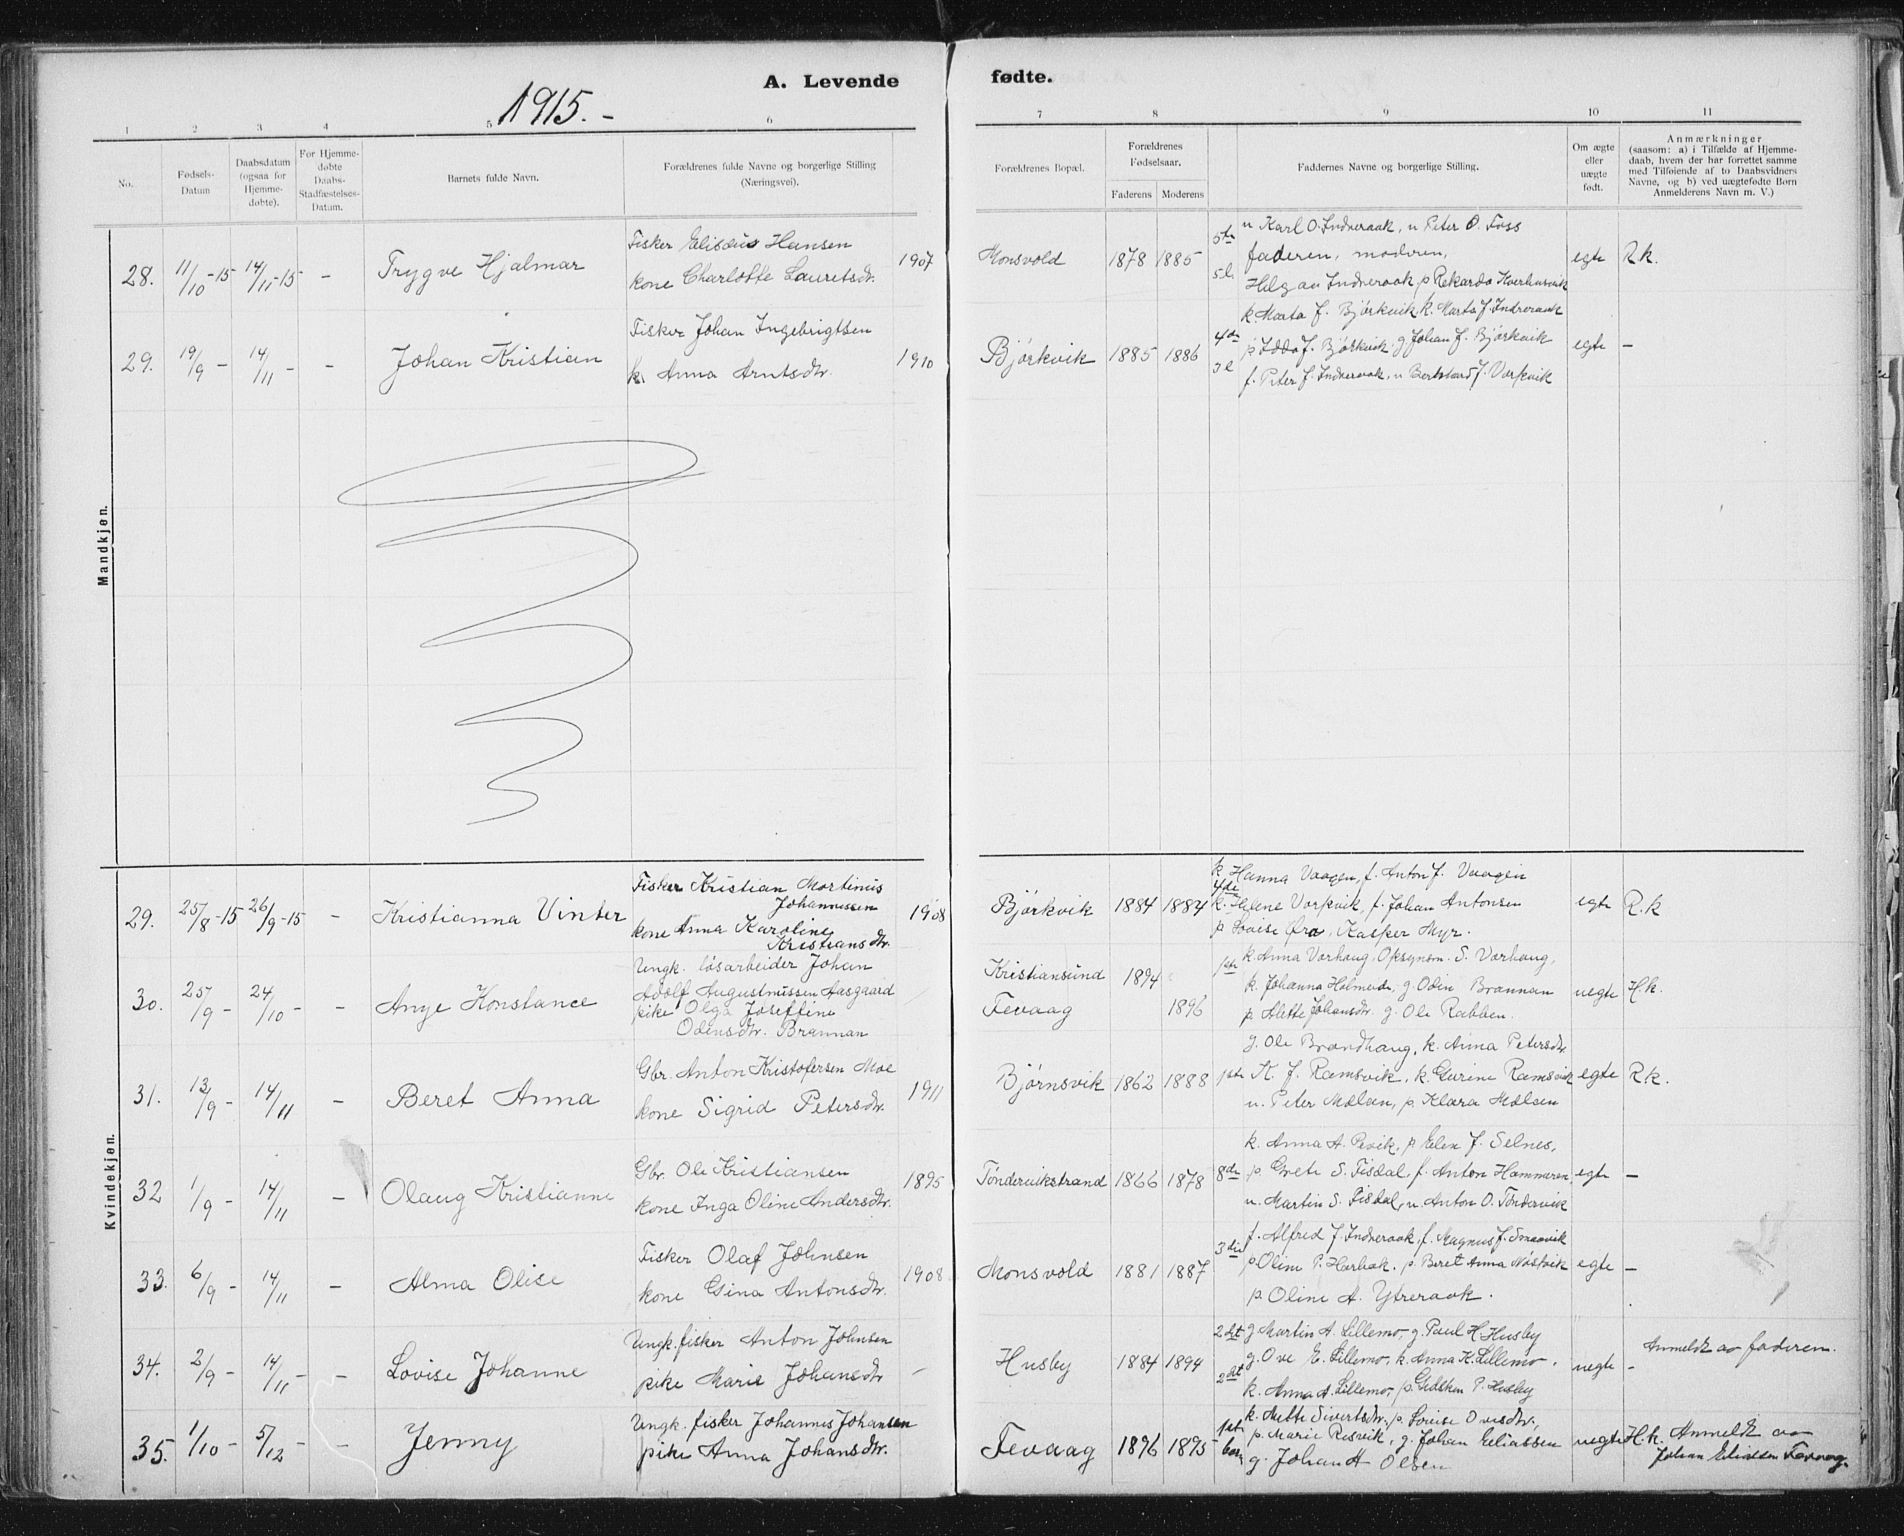 A. Levende
fødte.
1915.-
1 2 3 4 5 6
7 8 9 10 11
No.
Fødsels-
Datum
Daabsdatum
(ogsaa for
Hjemme-
døbte).
For Hjemme-
døbte
Daabs-
Stadfæstelses-
Datum.
Barnets fulde Navn.
Forældrenes fulde Navne og borgerlige Stilling
(Næringsvei).
Forældrenes Bopæl.
Forældrenes
Fødselsaar.
Faderens Moderens
Faddernes Navne og borgerlige Stilling.
Om ægte
eller
uægte
født.
Anmærkninger
(saasom: a) i Tilfælde af Hjemme-
daab, hvem der har forrettet samme
med Tilføiende af to Daabsvidners
Navne, og b) ved uægtefødte Børn
Anmelderens Navn m. V.)
Mandkjøn.
28. 11/10-15 14/11-15 - Trygve Hjalmar
Fisker Elisæus Hansen
kone Charlotte Lauretsdtr.
1907
Monsvold 1878 1885
5te
u Karl O. Indreraak, u Peter O. Foss
faderen, moderen,
Helga Indreraak
egte R.k.
29. 19/9 - 14/11 - - Johan Kristian
Fisker Johan Ingebrigtsen
k. Anna Arntsdtr.
1910
Bjørkvik 1885 1886
4de
k. Marta J. Bjørkvik, k. Marta J. Indreraak
g Johan J. Bjørkvik
f. Peter J. Indreraak, u
egte -
Kvindekjøn.
29. 25/8-15 26/9-15 - Kristianna Vinter
Fisker Kristian Martinus
Johannessen
kone Anna Karoline
Kristiansdtr.
1908
Bjørkvik 1884 1884
4de
k Hanna Vaagen, f. Anton J. Vaagen
k. Helene f. Johan Antonsen
p Lovise Øra, Kasper Myr.
egte R.k
30. 25/9 - 24/10 - - Anye Konstance
Ungk. løsarbeider Johan
Adolf Augustinussen Aasgaard
pike Olga Joseffine
Odensdtr. Brannan
Kristiansund 1894
Tevaag 1896
1ste
k. Anna Varhaug, Opsynsm. S. Varhaug,
k. Johanna g. Odin Brannan
p Mette Johansdtr. g. Ole Rabben.
uegte H.k.
31. 13/9 - 14/11 - Beret Anna
Gbr. Anton Kristofersen Moe
kone Sigrid Petersdtr.
1911
Bjørnsvik 1862 1888
1ste
g. Ole Brandhaug, k. Anna Petersdtr.
K. J. Ramsvik, k. Gurine Ramsvik
u. Peter Mælan, p. Klara Mælsen
egte R.k.
32 1/9 - 14/11 - Olaug Kristianne
Gbr. Ole Kristiansen
kone Inga Oline Andersdtr.
1895
Tøndervikstrand 1866 1878
8de
k. Anna A. p Elen J. Selnes,
p Grete S. Tisdal, f. Anton Hammaren
u. Martin S. Tisdal, u. Anton O. Tøndervik
egte -
33. 6/9 - 14/11 - Alma Olise
Fisker Olaf Johnsen
kone Gina Antonsdtr.
1908
Monsvold 1881 1887
3die
f. Alfred J. Indreraak, f. Magnus J. Smaavik
p Oline P. p. Beret Anna
p. Oline A. Ytreraak.
egte -
34. 2/9 - 14/11 - - Lovise Johanne
Ungk. fisker Anton Johnsen
pike Marie Johansdtr
-
Husby 1884 1894
2det
2det
g Martin A. Lillemo, g. Paul H. Husby
g. Ove E. Lillemo, k. Anna K. Lillemo.
k. Anna A. Lillemo, p. P. Husby
uegte -
Anmeldt av faderen.
35. 1/10 - 5/12 - - Jenny
Ungk. fisker Johannes Johansen
pike Anna Johansdtr.
Tevaag 1896 1895
1ste
barn
k. Mette Sivertsdtr. p. Lovise Ovesdtr.
p. Marie Resvik, g. Johan Eliassen
g. Johan A Olsen
uegte H.k. Anmeldt av
Johan Eliassen Tevaag.